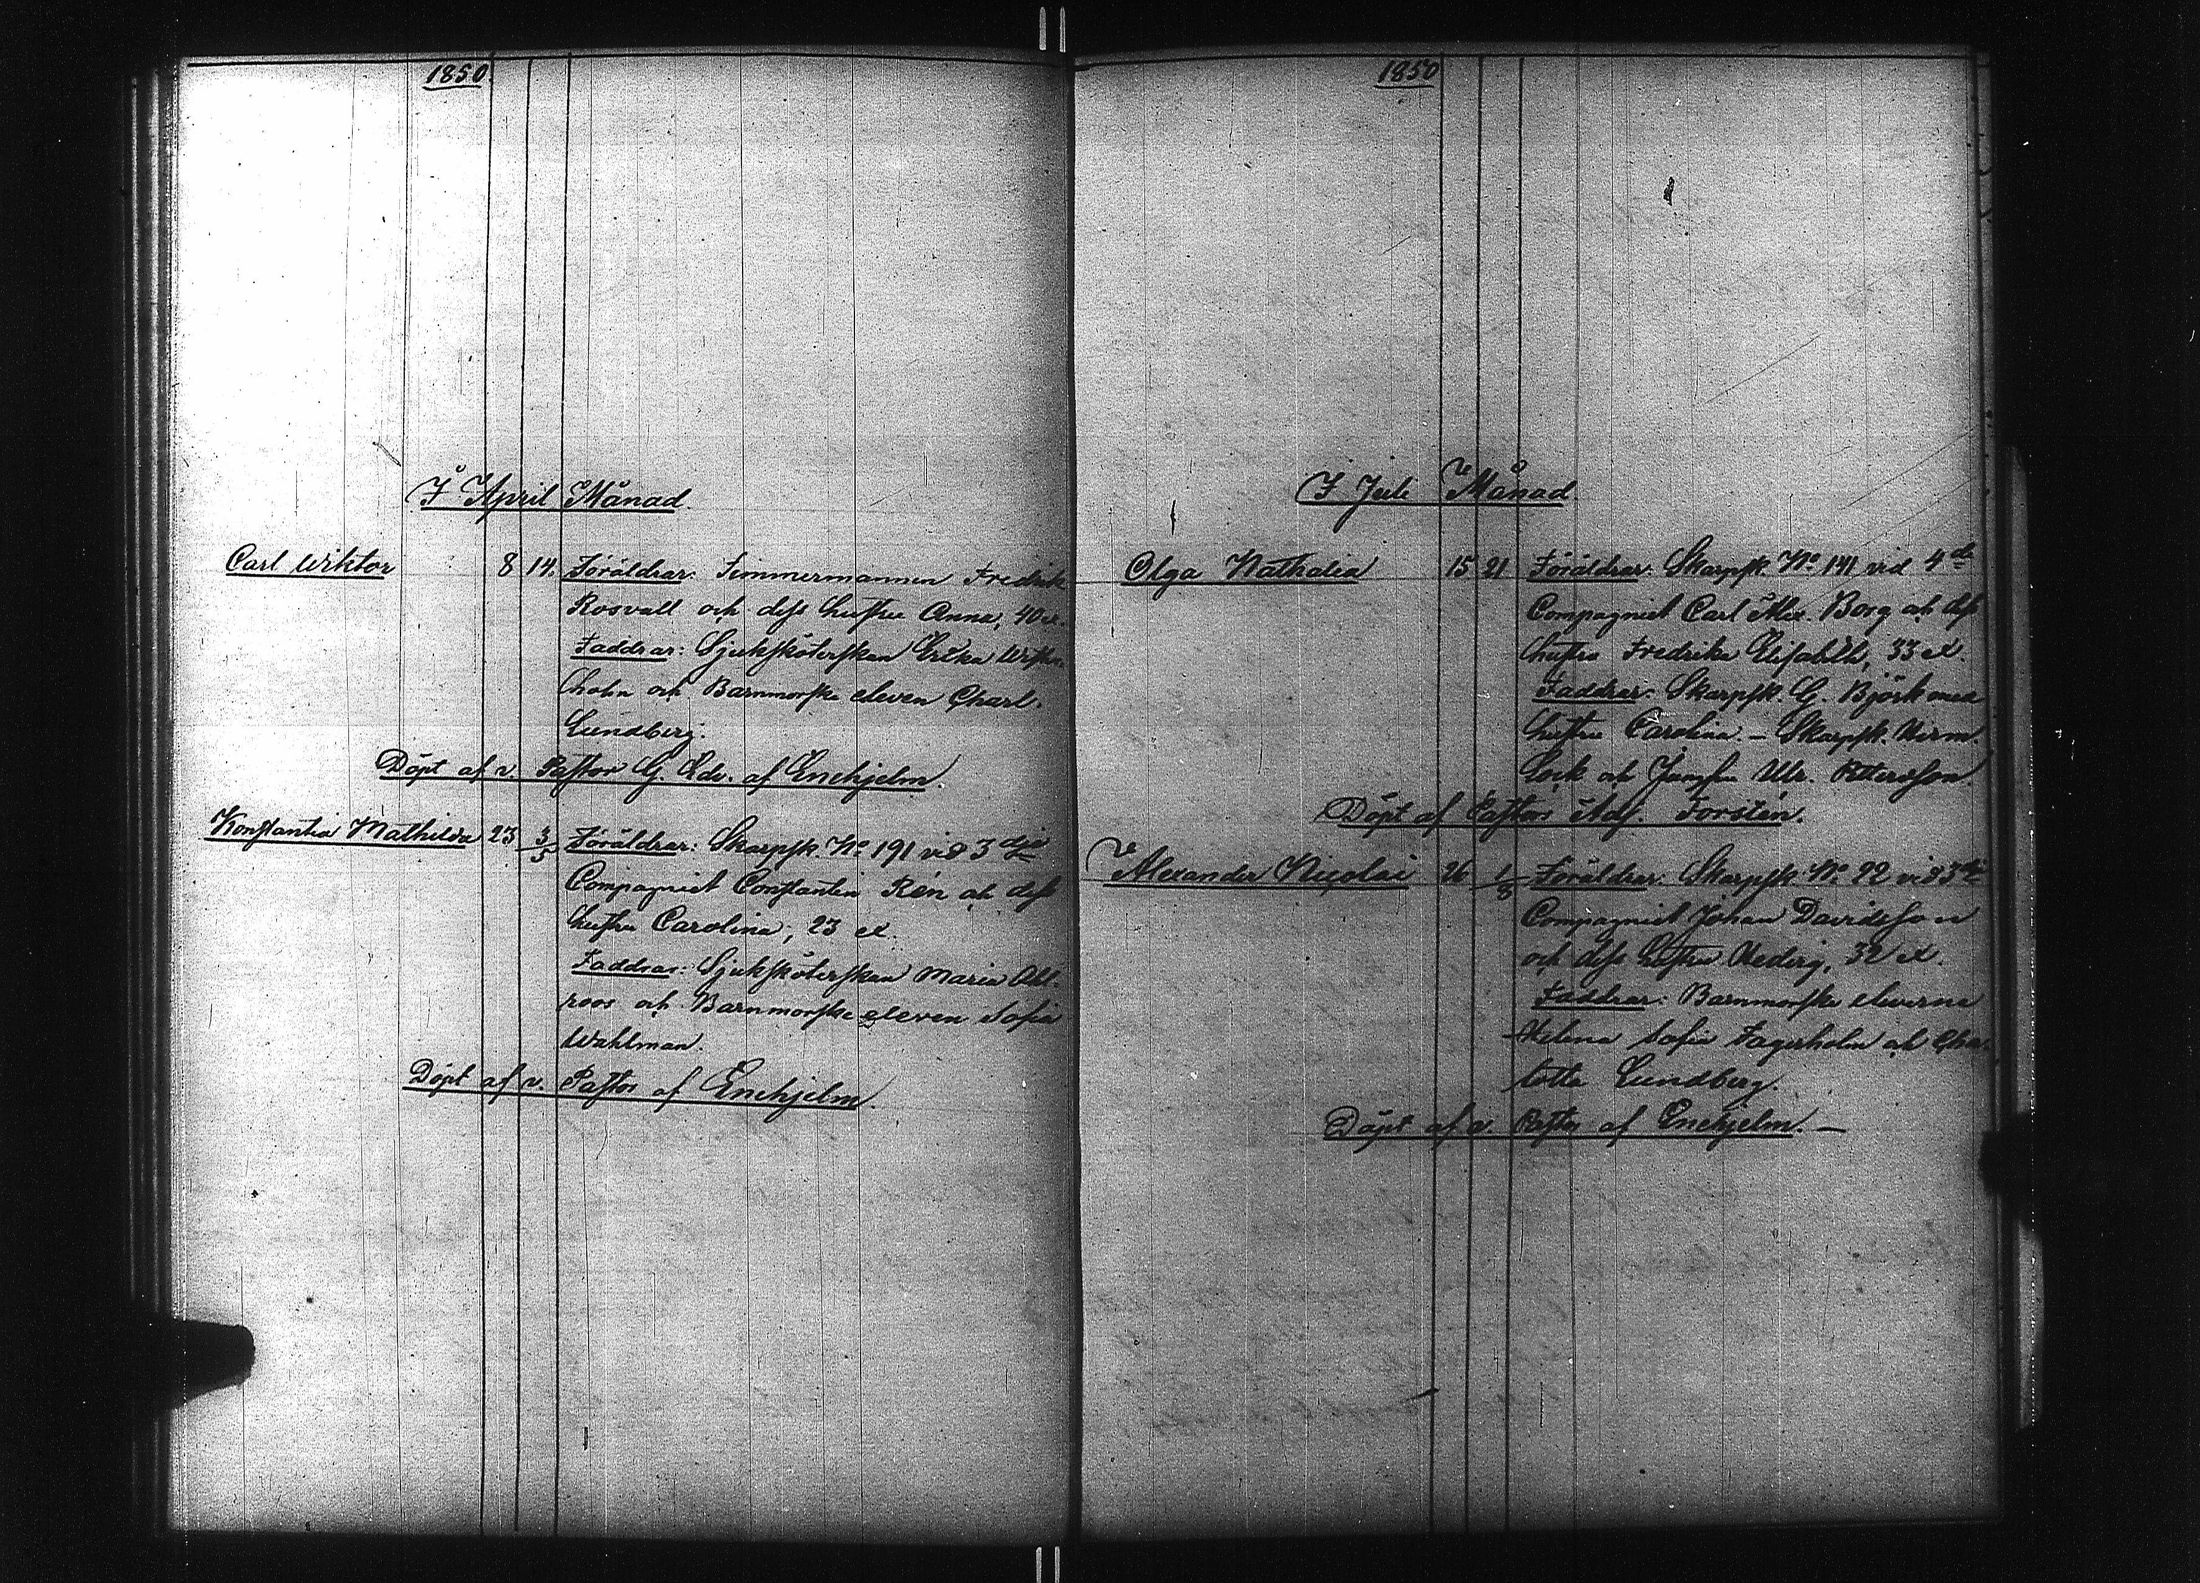 1850.
I April Månad.
Carl Wiktor 8 14. Föräldrar: Timmermannen Fredrik
Rosvall och dess hustru Anna, 40 år.
Faddrar: Sjuksköterskan Erika
holm och Barnmorske eleven Charl.
Lundberg.
Döpt af v. Pastor G. Edv. af Enehjelm.
Konstantia Mathilda 23 3/5 Föräldrar: Skarpsk. No 191 vid 3dje
Compagniet Constantin Rén och dess
hustru Carolina, 23 år.
Faddrar: Sjuksköterskan Maria Ahl-
roos och Barnmorske eleven Sofia
Wahlman.
Döpt af v. Pastor af Enehjelm.
1850
I Juli Månad.
Olga Nathalia 15 21 Föräldrar: Skarpsk. No 141 vid 4de
Compagniet Carl Alex. Borg och dess
hustru Fredrika Elisabeth, 33 år.
Faddrar: Skarpsk. G. Björk med
hustru Carolina – Skarpsk. Herm.
Lock och Jungfru Ulr. Petersson.
Döpt af Pastor Adf. Forstén.
Alexander Nicolai 26 1/8 Föräldrar: Skarpsk. No 22 vid 3dje
Compagniet Johan Davidsson
och dess hustru Hedvig, 32 år.
Faddrar: Barnmorske eleverna
Helena Sofia Fagerholm och Char-
lotta Lundberg.
Döpt af v. Pastor af Enehjelm. –